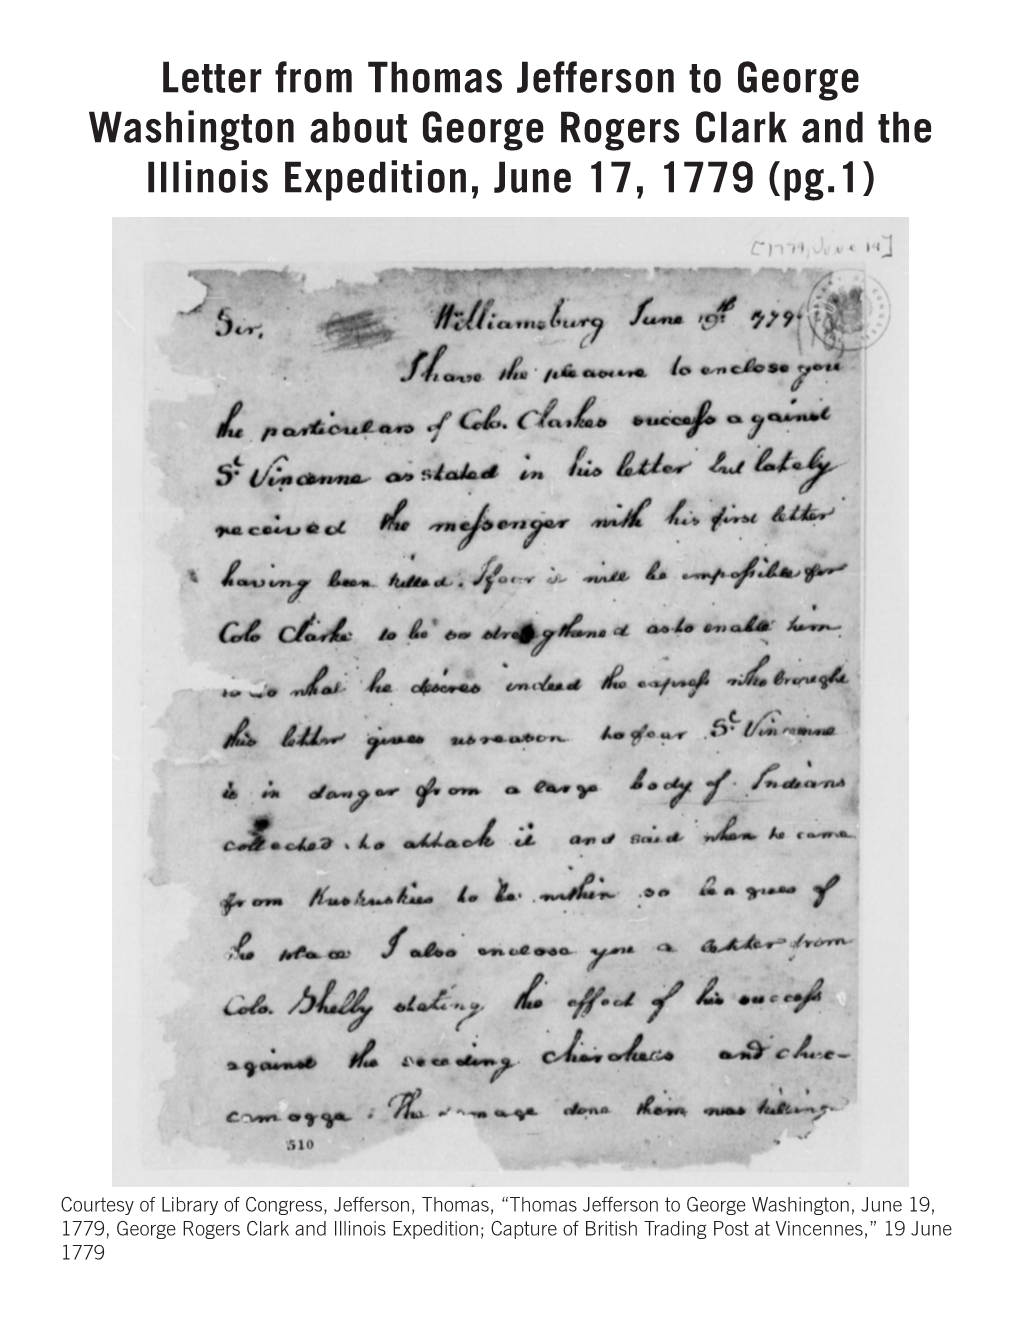 Letter from Thomas Jefferson to George
Washington about George Rogers Clark and the
Illinois Expedition, June 17, 1779 (pg.1)
[1779, June 19]
Sir, Williamsburg June 19th 779
I have the pleasure to enclose you
the particulars of Colo. Clarkes success against
St Vincenne as stated in his letter but lately
received the messenger with his first letter
having been killed. I fear it will be impossible for
Colo Clarke to be so strengthened as to enable him
to do what he desires indeed the express who brought
this letter gives us reason to fear St Vincenne
is in danger from a large body of Indians
collected to attack it and said when he came
from Kuskuskies to be within 30 leagues of
the place I also enclose you a letter from
Colo. Shelby stating the effect of his success
against the seceding cherokees and chuc-
camogga. The damage done them was killing
510
Courtesy of Library of Congress, Jefferson, Thomas, “Thomas Jefferson to George Washington, June 19,
1779, George Rogers Clark and Illinois Expedition; Capture of British Trading Post at Vincennes,” 19 June
1779